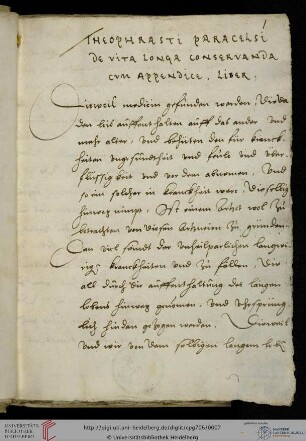 1
THEOPHRASTI PARACELSI
DE VITA LONGA CONSERVANDA
CVM APPENDICE, LIBER.
Dieweil medicin gefunden worden, die da
den leib auffenthalten auff das ander und
mehr alter, und behüten den für kranck-
heiten ungesundtheit und feule und uber-
flüssigkeit und vor dem abnemen, und
so ein solcher in kranckheit were, dieselbig
hinweg nimpt, Ist einem Artzt wol zu
betrachten von diesen Artzneien zu
an viel
kranckheiten und zu fellen, die
all durch die auffenthaltung des langen
lebens hinweg genomen, und
lich hindan gezogen werden. Dieweil
und wir von dem selbigen langen leben
UNIVERSITÄTS-
BIBLIOTHEK
HEIDELBERG
http://digi.ub.uni-heidelberg.de/diglit/cpg706/0007
© Universitätsbibliothek Heidelberg